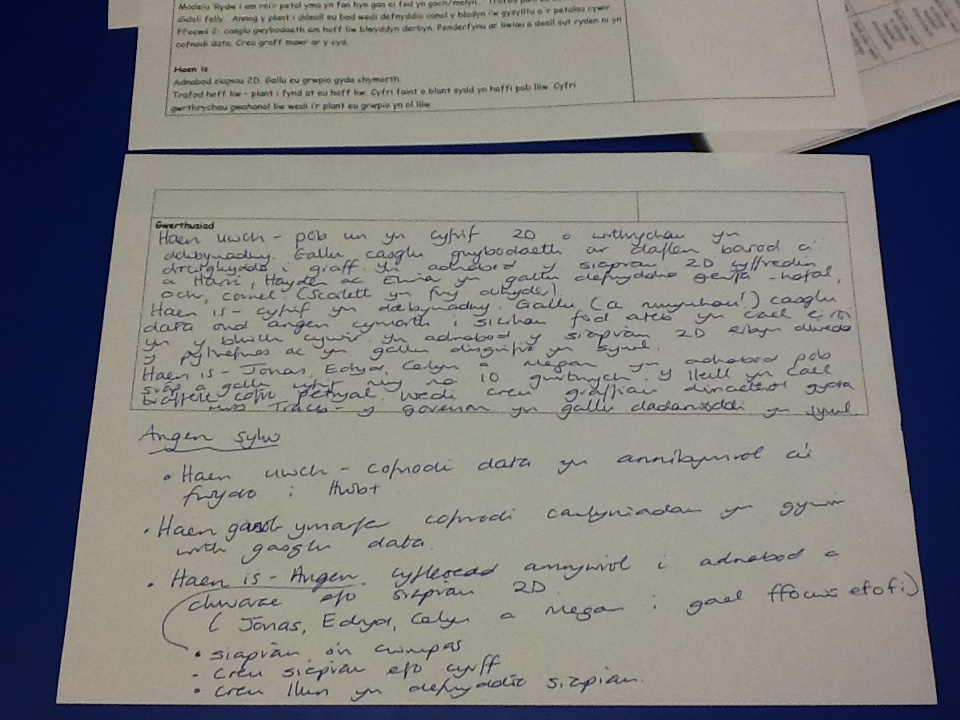 Modelu 'Rydw i am roi'r petal yma yn fan hyn gan ei fod yn goch/melyn.'
didoli felly. Annog y plant i ddeall eu bod wedi defnyddio canol y blodyn i'w gysylltu a'r petalau cywir.
Ffocws 2: casglu gwybodaeth am hoff liw blwyddyn derbyn. Penderfynu ar liwiau a deall sut ryden ni yn
cofnodi data. Creu graff mawr ar y cyd.
Haen is
Adnabod siapiau 2D. Gallu eu grwpio gyda chymorth.
Trafod hoff liw - plant i fynd at eu hoff liw. Cyfri faint o blant sydd yn hoffi pob lliw. Cyfri
gwrthrychau gwahanol liw wedi i'r plant eu grwpio yn ol lliw.
Gwerthusiad
Haen uwch - pob un yn cyfrif 20 o wrthrychau yn
ddibynadwy. Gallu casglu gwybodaeth ar daflen barod a'i
drosglwyddo i graff. Yn adnabod y siapiau 2D cyffredin
a Harri, Hayden ac Ema yn gallu defnyddio geirfa - hafal,
ochr, cornel. (Scarlett yn fwy dihyder).
Haen is - cyfrif yn ddibynadwy. Gallu (a mwynhau!) casglu
data ond angen cymorth i sicrhau fod ateb yn cael ei roi
yn y blwch cywir. Yn adnabod y siapiau 2D erbyn diwedd
y pythefnos ac yn gallu disgrifio yn syml.
Haen is - Jonas, Edryd, Celyn a Megan yn adnabod pob
siâp a gallu cyfrif mwy na 10 gwrthrych. Y lleill yn cael
trafferth cofio petryal. Wedi creu graffiau gyda
Miss - y gallu dadansoddi yn syml.
Angen sylw
• Haen uwch - cofnodi data yn annibynnol a'i
fwydo i Hwb+
• Haen ganol ymarfer cofnodi canlyniadau yn gywir
wrth gasglu data.
• Haen is - Angen cyfleoedd anffurfiol i adnabod a
chwarae efo siapiau 2D
(Jonas, Edryd, Celyn a Megan i gael ffocws efo fi)
• siapiau o'n cwmpas
- Creu siapiau efo cyrff
• creu llun yn defnyddio siapiau.